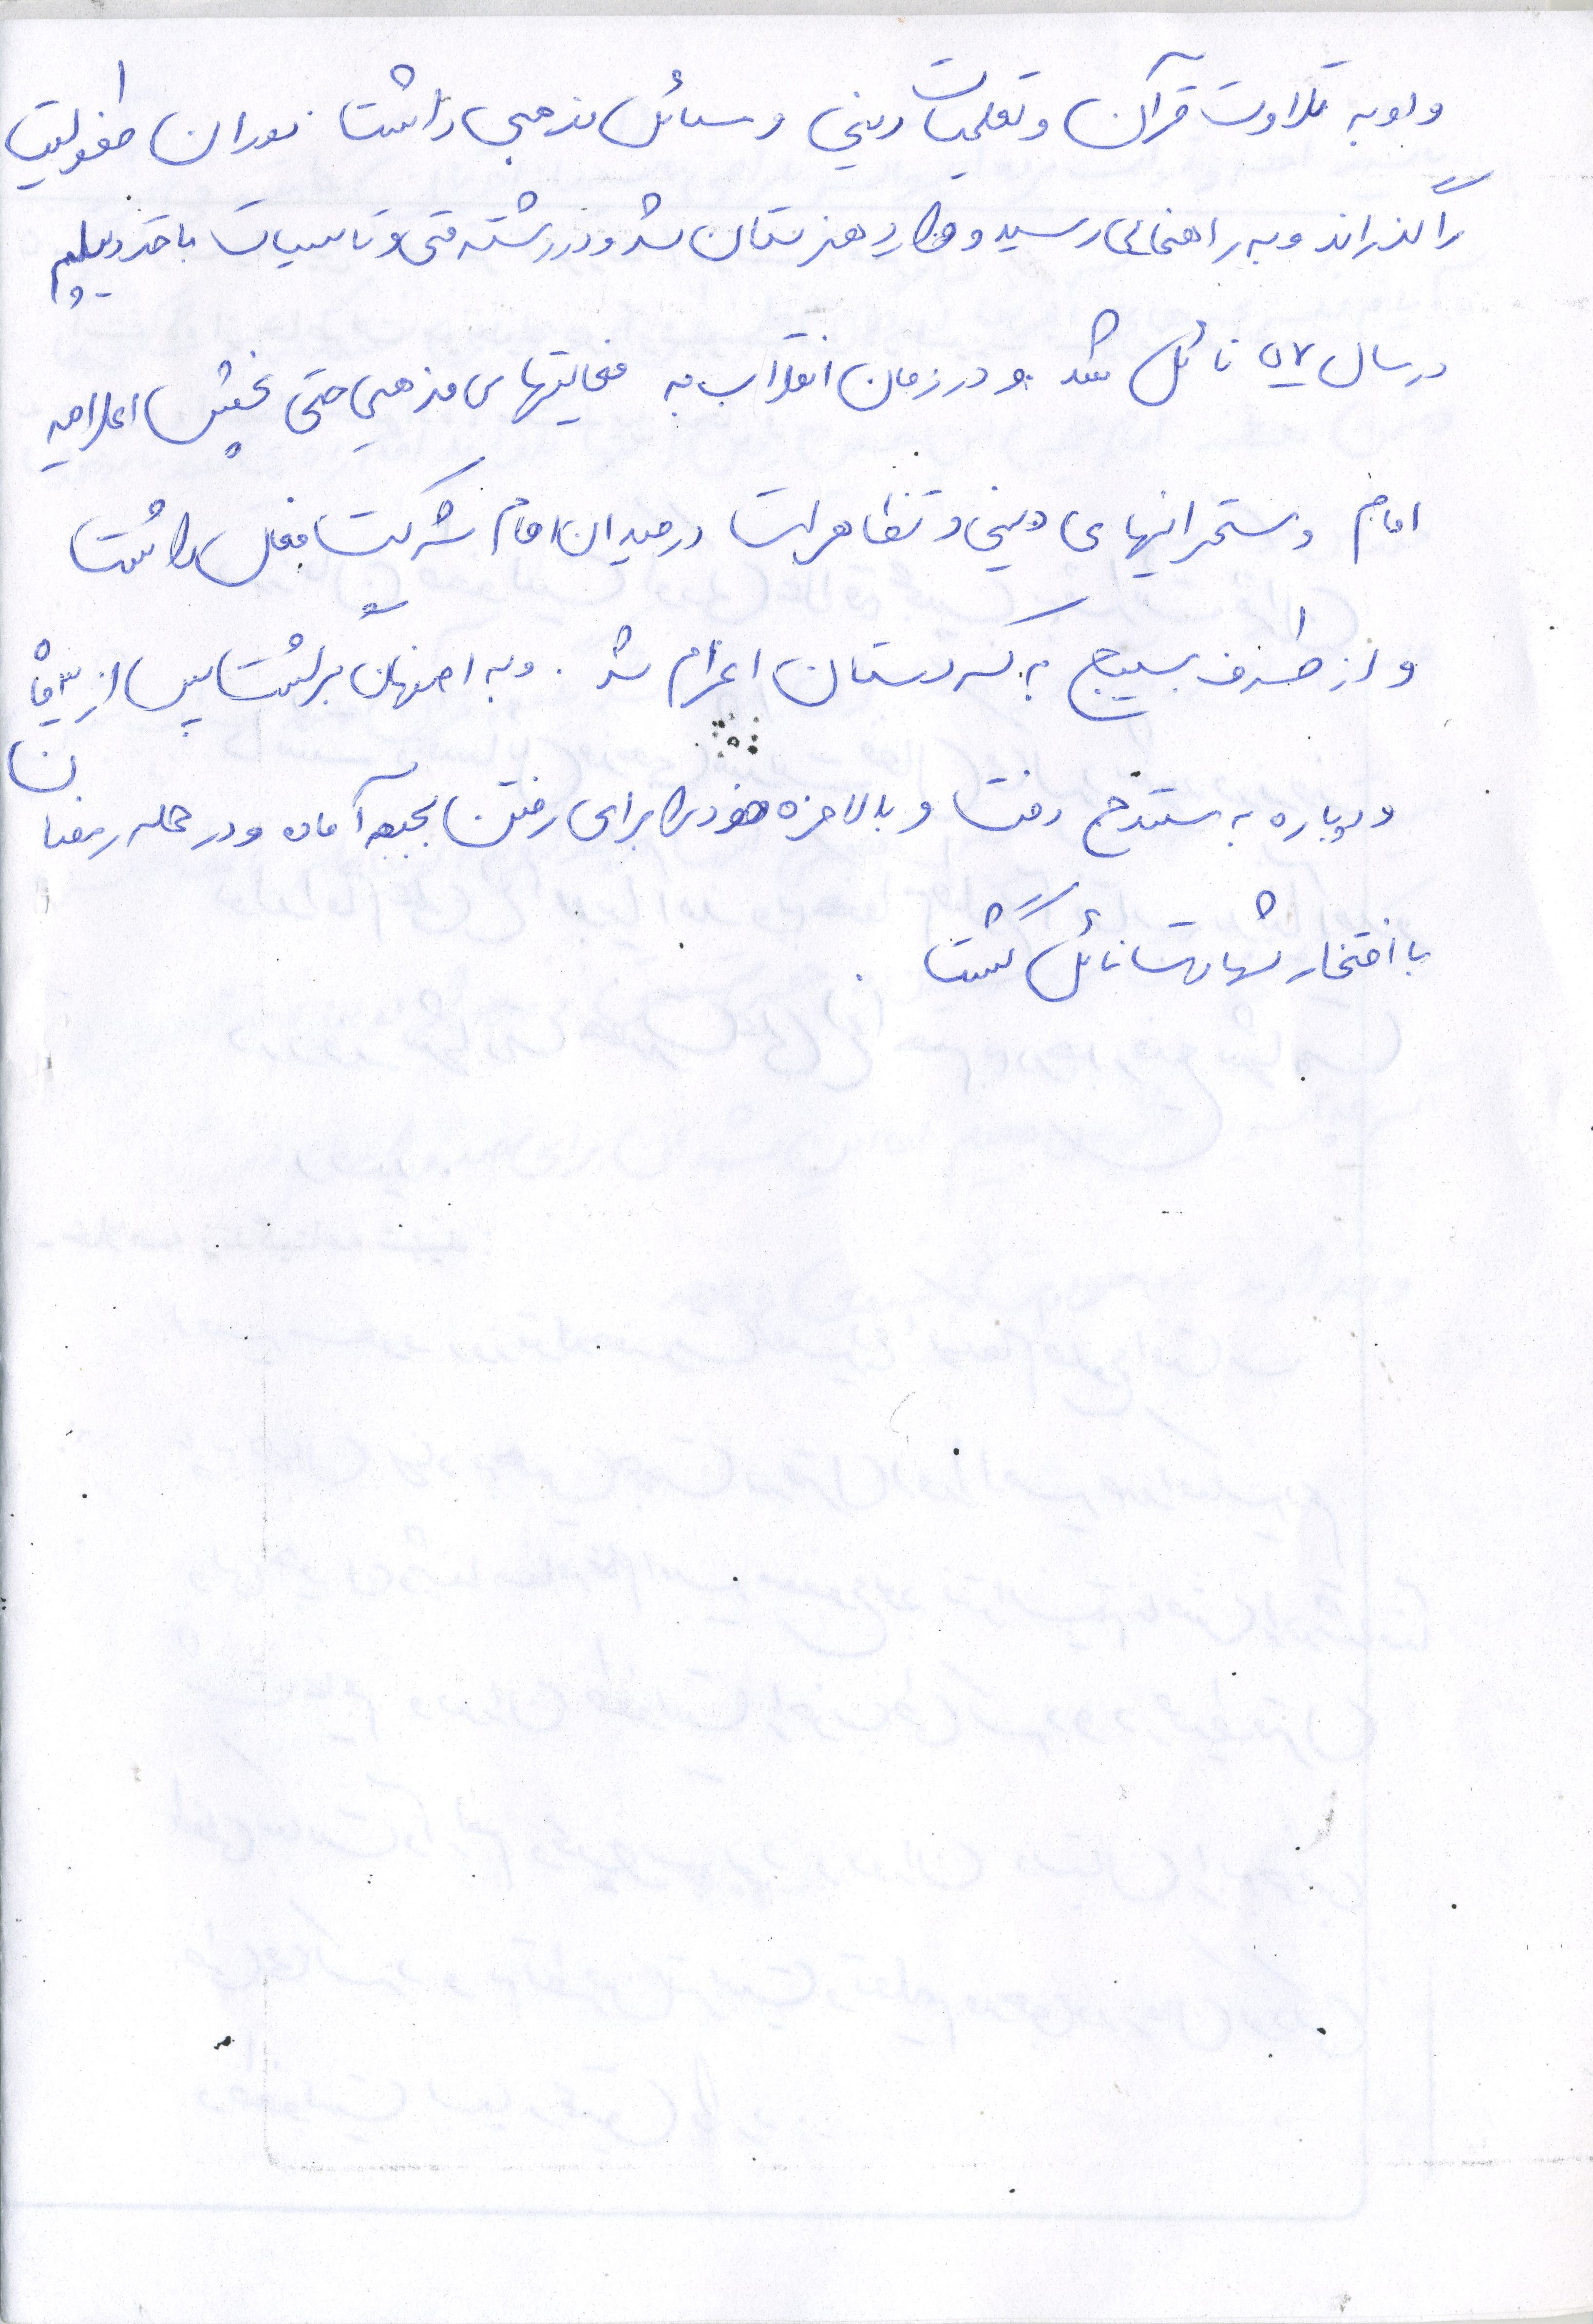 و او به تلاوت قرآن و تعلیمات دینی و مسائل مذهبی داشت دوران طفولیت
را گذراند و به راهنمائی رسید و وارد هنرستان شد و در رشته فنی و تاسیسات با اخذ دیپلم
در سال ۵۷ نائل شد و در زمان انقلاب به فعالیتهای مذهبی حتی پخش اعلامیه
امام و سخنرانیهای دینی و تظاهرات در میدان امام شرکت فعال داشت
و از طرف بسیج به کردستان اعزام شد . و به اصفهان برگشت پس از ۳ ماه
دوباره به سنندج رفت و بالاخره خود را برای رفتن بجبهه آماده و در حمله رمضان
با افتخار شهادت نائل گشت .